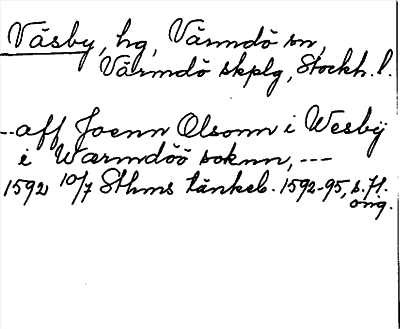 Väsby, hg, Värmdö sn,
Värmdö skplg, Stockh. l.
--aff Joenn Olsonn i Wesbÿ
i Warmdöö soknn, ---
1592 10/7 Sthms tänkeb. 1592-95, s. 71.
orig.